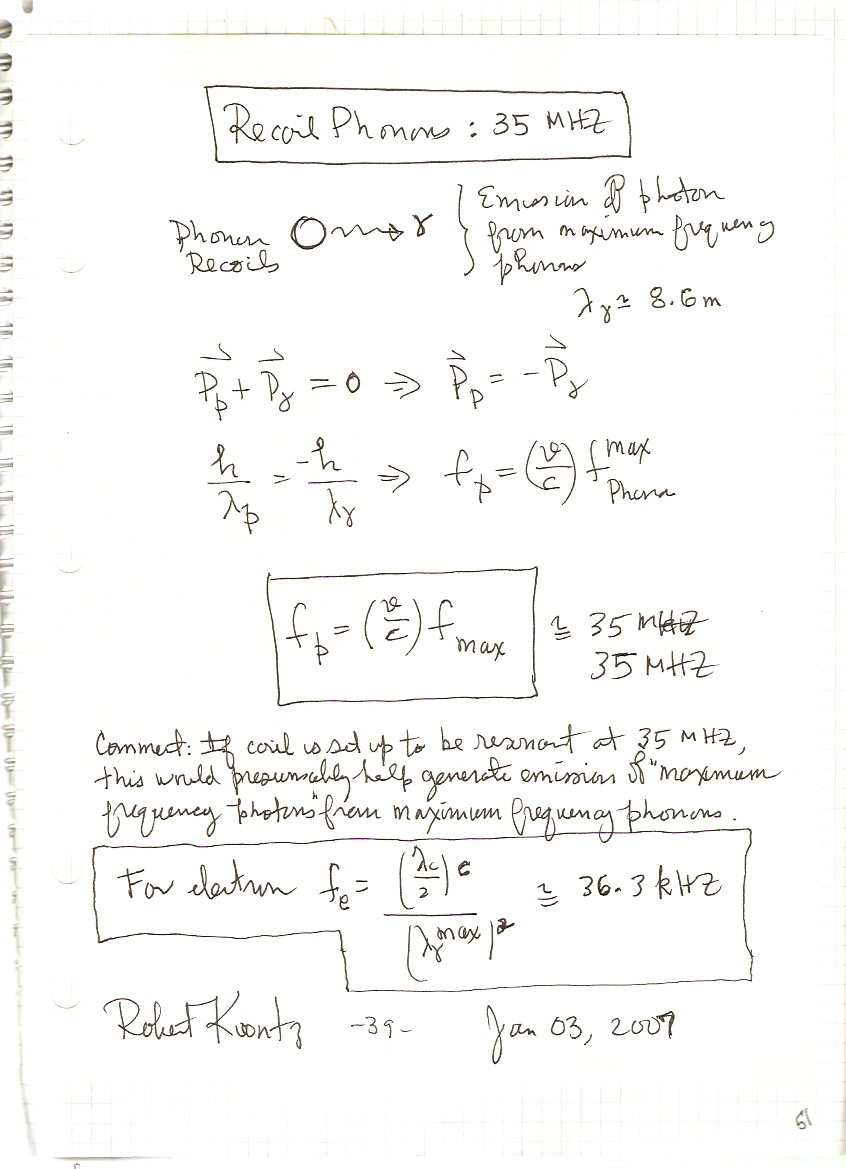 Recoil Phonons : 35 MHZ
Phonon Recoils O~~→ γ } Emission of photon
from maximum frequency
phonons
λγ ≃ 8.6 m
P⃗p + P⃗γ = 0 ⇒ P⃗p = -P⃗γ
h/λp = -h/λγ ⇒ fp = (v/c) f max Phonon
fp = (v/c) fmax ≅ 35 MHZ
35 MHZ
Comment: If coil is set up to be resonant at 35 MHZ,
this would presumably help generate emission of "maximum
frequency photons" from maximum frequency phonons.
For electron fe = (λc/2) c / (λγ max)² ≅ 36.3 kHZ
Robert Koontz -39- Jan 03, 2007
51